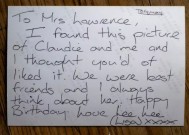 To Mrs Lawrence,
I found this picture
of Claudie and me and
I thought you'd of
liked it. We were best
friends and I always
think about her. Happy
Birthday love
(Lisa) xxxxx